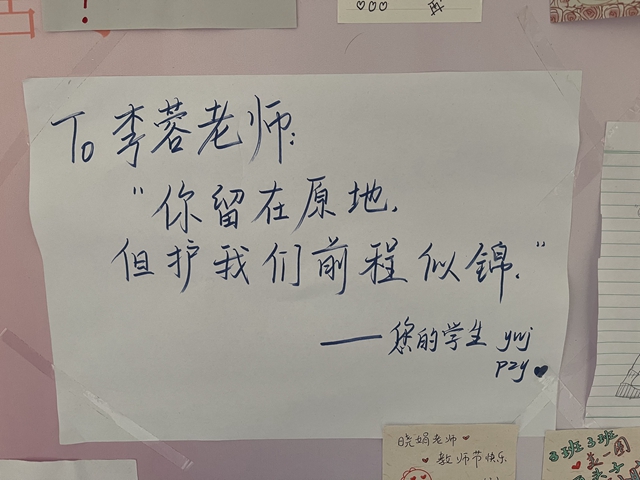 To 李蓉老师:
"你留在原地,
但护我们前程似锦."
——您的学生 ywj
pzy
晓娟老师
教师节快乐
3班 3班